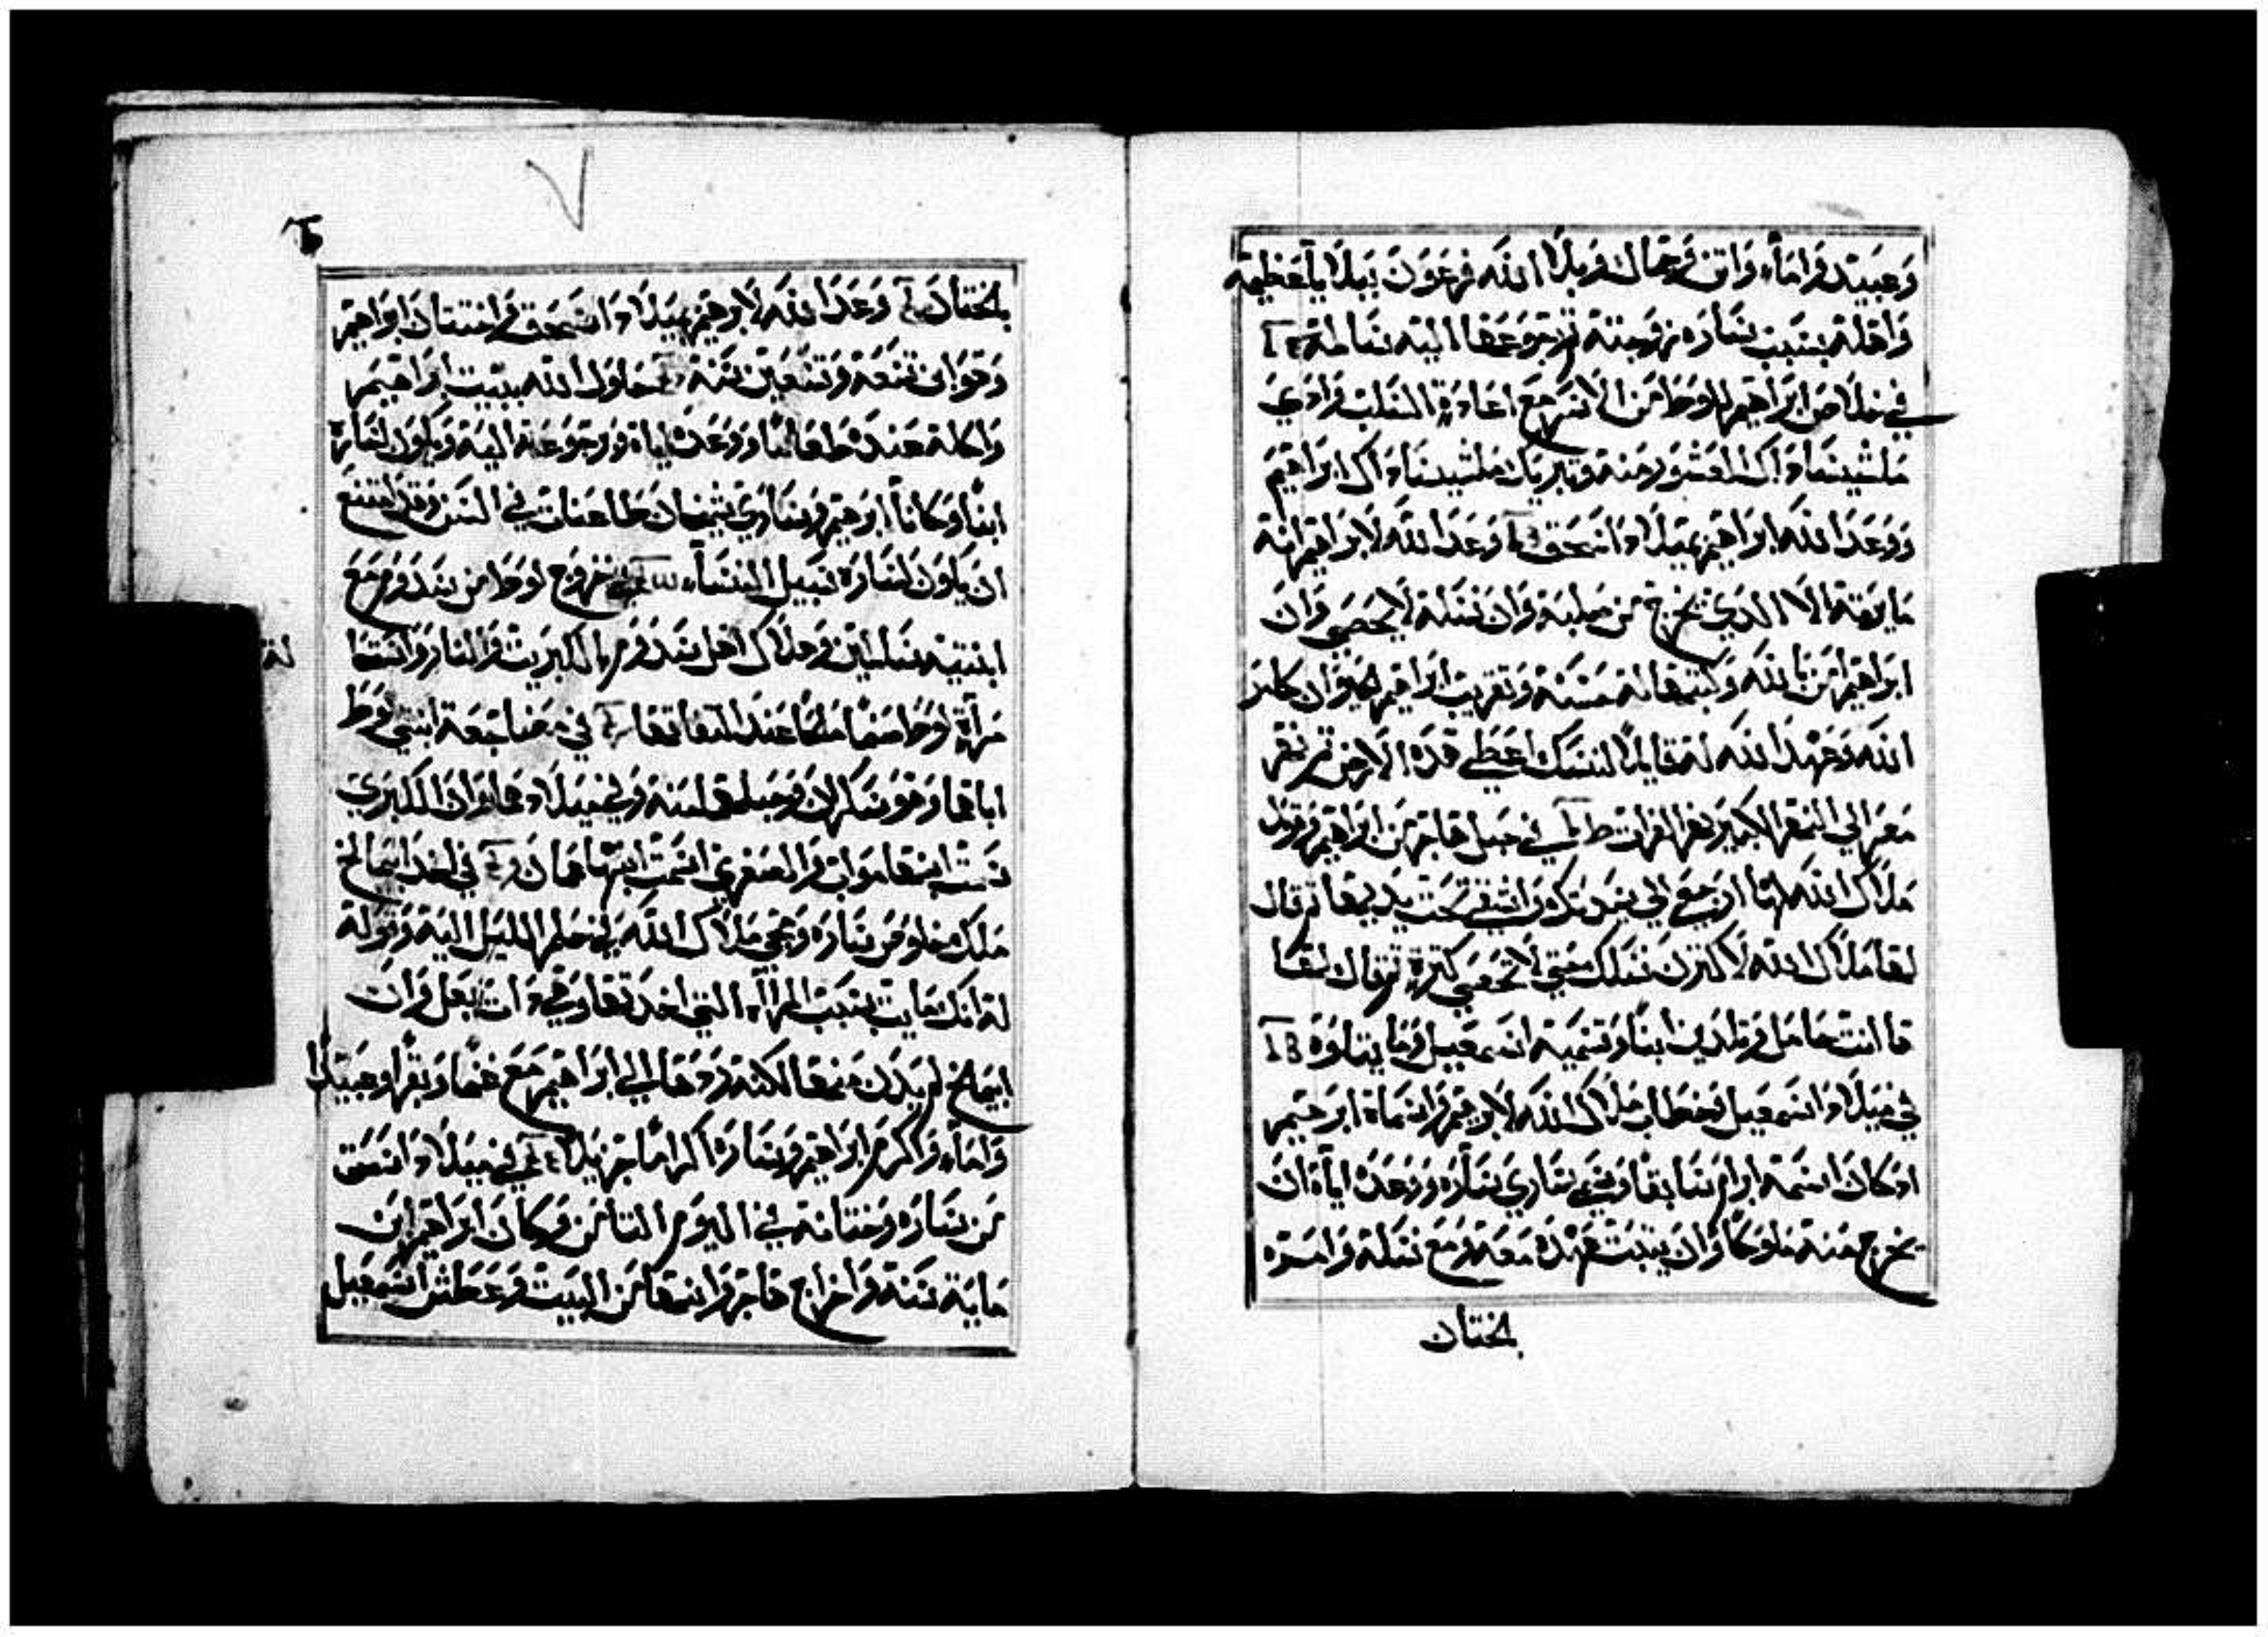 وَعبيَد وَامَاء وَاتن وَجمال وَبلاا الله فرعَوَن ببلَايا عَظيمة
وَاهله بسَبب سَاره زوجته ثم رجوعهَا اليه سَالمة
في خلاص ابرَاهيم للوط من الاسر مع اعادة السَلب وَادي
ملشيسَاداك العشور منه وتبريك ملشيسَاداك ابرَاهيم
ووَعَد الله ابرَاهيم بميلاد اسَحَق وَعَد الله لابرَاهيم انه
مَا يرثه الا الدي يخرج من صلبه وَان نسَله لا يحصى وَان
ابرَاهيم امن بالله وَكتبها له حسَنة وَتقريب ابرَاهيم
الله وَعهد الله له قايلًا لنسَلك اعطي هَده الارض من نهر
مصَر الي النهر الكبير نهر الفرات في حبل هاجر من ابرَاهيم وقول
ملاك الله لها ارجعَي الي ستك وَ تحت يديها ثم قال
لهَا ملاك الله لاكثرن نسَلك حتي لا تحصى كثرة ثم قال لهَا
هَا انت حَامل وَتلدين ابنًا وتسَميه اسَمعيل وَما يتلوه
في ميلاد اسَمعيل وَخطاب ملاك الله لابرهيم وَاسماه ابرَهيم
اد كان اسَمه ابرام سَابقًا وسَمى سَاري سَاره ووَعَده اياه ان
يخرج منه ملوكًا وَان يتبت عَهده مَعَه وَمع نسَله وَامره
بالختان
بالختان وَعَد الله لابرهيم بميلاد اسَحق وَاختتان ابرَاهيم
وَهو ابن تسَعة وَتسعين سنة حلول الله ببيت ابرَاهيم
وَاكله عنده طعَامًا ووَعَده اياه ورجوعَه اليه وَيكون لسَارة
ابنًا وَكانا ابرَهيم وَسَاري شيخان طاعنان في السَن وَقد امتنع
ان يكون لسَاره سَبيل النسَاء في خروج لوط من سَدوم مَع
ابنتيه سَالمين وَهلاك اهل سَدوم بالكبريت وَالنار وَ
مرآة لوط صنمًا ملحًا عند التفاتها في مضاجعة ابنتي لوط
اباهما وَهو سَكران وَحبلهما منه وَفي ميلادهما وَان الكبري
سَمت ابنها مواب وَالصغري اسمَت ابنها عمان في اخد ابيمالخ
ملك خلوص سَاره وَمجي ملاك الله في حلم الليل اليه وَقوله
له انك مايت بسَبب المرآة التي اخدتها وَهي دات بعل وَان
ابيمالخ لم يدن منها لكنه ردهَا الي ابرَاهيم مَع غنمًا وَبقرًا وَعبيَدًا
وَامَاء وَاكرم ابرَاهيم وَسَاره اكرامًا جزيلًا في ميلاد اسَحق
من سَاره وَختانه في اليوم التامن وَكان ابرَاهيم ابن
ماية سَنة وَاخراج هَاجر وَابنهَا من البيت وَعَطش اسمعَيل